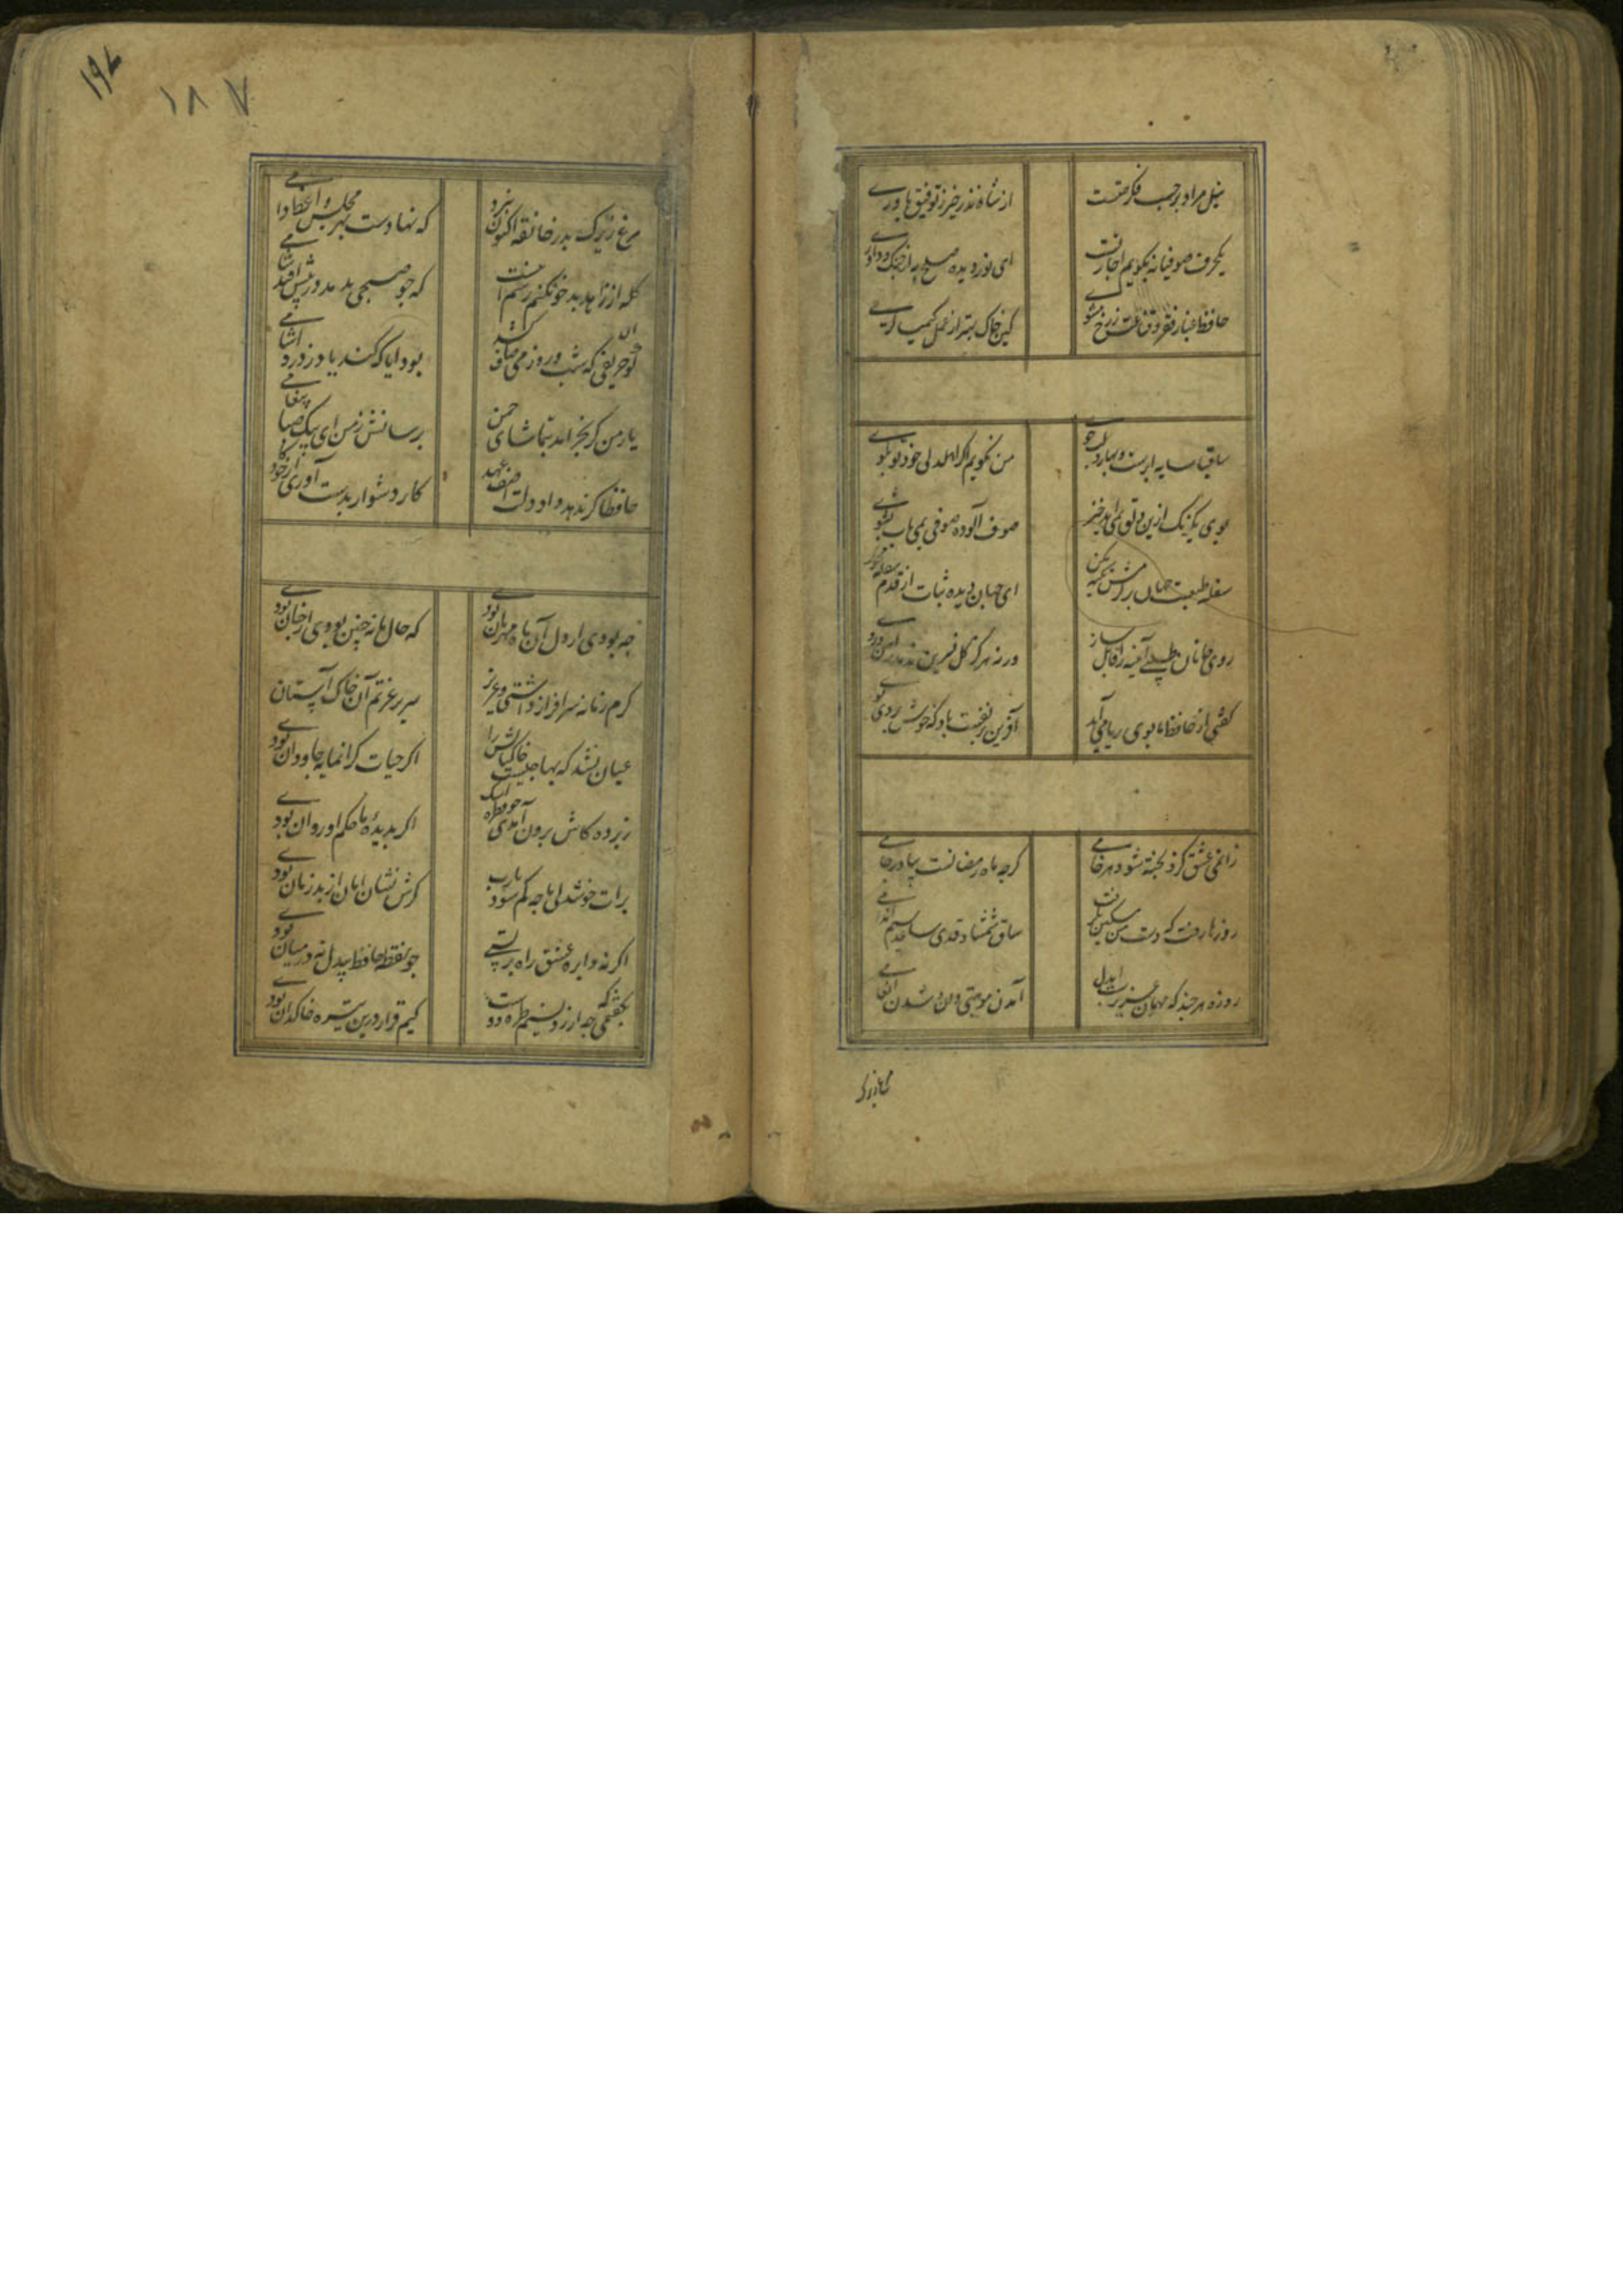 نیل مراد بر حسب فکر همتست از شاه نذر خیر ز توفیق یاوری
یکحرف صوفیانه بکویم اجازتست ای نور دیده صلح به از جنک و داوری
حافظ غبار فقر و قناعت ز رخ مشوی کین خاک بهتر از عمل کیمیا کری
ساقیا سایه ابرست و بهار و لب جوی من نکویم اکر اهل دلی خود تو بکوی
بوی یکرنک ازین دلق نمی آید خیز صوف آلوده صوفی بمی ناب بشوی
سفله طبعست جهان بر کرمش تکیه مکن ای جهان دیده ثبات از قدم سفله مجوی
روی جانان طلبی آینه را قابل ساز ورنه هرکز کل نسرین ندمد زاهن و روی
کفتی از حافظ ما بوی ریا می آید آفرین بر نفست باد که خوش بردی بوی
زان می عشق کزو پخته شود هر خامی کرچه ماه رمضانست بیاور جامی
روزها رفت که دست من مسکین نکرفت ساق شمشاد قدی ساعد سیم اندامی
روزه هر چند که مهمان عزیزست ایدل آمدن موهبتی دان و شدن انعامی
مرغ زیرک
۱۹۷
۱۸۷
مرغ زیرک بدر خانقه اکنون نپرد که نهادست بهر مجلس وعظی دامی
کله از زاهد بدخو نکنم رسم اینست که چو صبحی بدمد در پیش افتد شامی
کو حریفی که شب و روز می صاف کشد بود ایا که کند یاد ز درد آشامی
یار من کر بخرامد بتماشای چمن برسانش ز من ای پیک صبا پیغامی
حافظا کر ندهد داد دلت آصف عهد کار دشوار بدست آوری از خود کامی
چه بودی ار دل آن ماه مهربان بودی که حال ما نه چنین بودی ار چنان بودی
کرم زمانه سرافراز داشتی و عزیز سریر عزتم آن خاک آستان بودی
عیان نشد که بها چیست خاک پاش را اکر حیات کرانمایه جاودان بودی
ز پرده کاش برون آمدی چو قطره اشک اکر بدیده ما حکم او روان بودی
برات خوشدلی ما چه کم شدی یارب کرش نشان امان از بد زمان بودی
اکر نه دایره عشق راه بر بستی چو نقطه حافظ بیدل نه در میان بودی
بکفتمی که چه ارزد نسیم طره دوست کیم قرار درین تیره خاکدان بودی